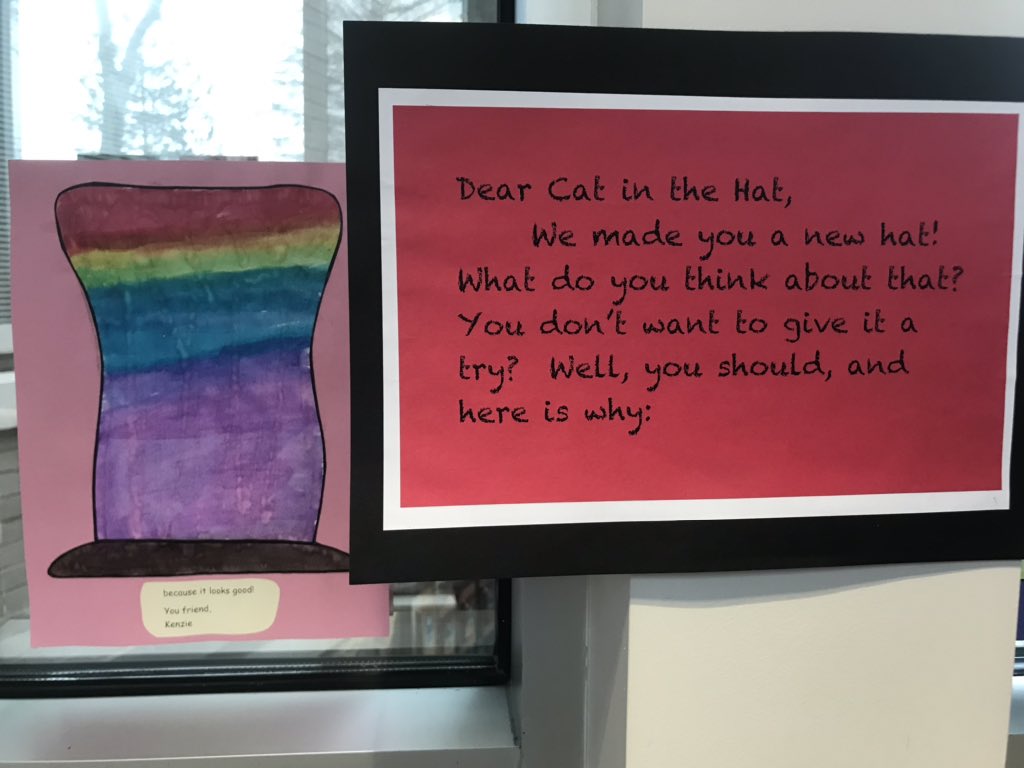 Dear Cat in the Hat,
We made you a new hat!
What do you think about that?
You don't want to give it a
try? Well, you should, and
here is why:
because it looks good!
You friend,
Kenzie